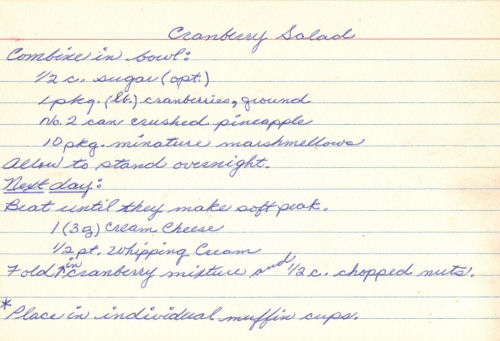 Cranberry Salad
Combine in bowl:
1/2 c. sugar (opt.)
1 pkg. (lb.) cranberries, ground
No. 2 can crushed pineapple
10 pkg. minature marshmellows
Allow to stand overnight.
Next day:
Beat until they make soft peak.
1 (3 oz) Cream Cheese
1/2 pt. Whipping Cream
Fold in cranberry mixture and 1/2 c. chopped nuts.
*Place in individual muffin cups.